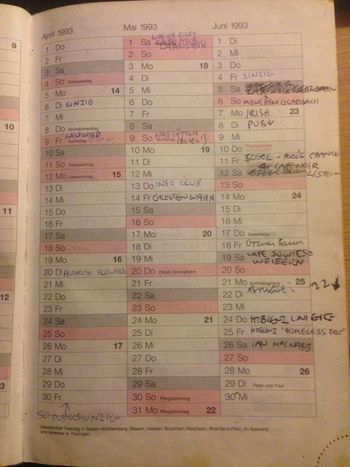 9
10
11
12
3
April 1993
1 Do
2 Fr
3 Sa
4 So Palmsonntag
5 Mo 14
6 Di SINZIG
7 Mi
8 Do Gründonnerstag
9 Fr NEUWIED Karfreitag
10 Sa
11 So Ostersonntag
12 Mo Ostermontag 15
13 Di
14 Mi
15 Do
16 Fr
17 Sa
18 So
19 Mo 16
20 Di HOTHOUSE FLOWERS
21 Mi
22 Do
23 Fr
24 Sa
25 So
26 Mo 17
27 Di
28 Mi
29 Do
30 Fr
SINZIG
Mai 1993
LIFE OF RILEY
1 Sa
2 So
3 Mo 18
4 Di
5 Mi
6 Do
7 Fr
8 Sa
9 So NASTÄTTEN
10 Mo 19
11 Di
12 Mi
13 Do INSO CLUB
14 Fr GROSSENWAHN
15 Sa
16 So
17 Mo 20
18 Di
19 Mi
20 Do Christi Himmelfahrt
21 Fr
22 Sa
23 So
24 Mo 21
25 Di
26 Mi
27 Do
28 Fr
29 Sa
30 So Pfingstsonntag
31 Mo Pfingstmontag 22
Juni 1993
1 Di
2 Mi
3 Do
4 Fr SINZIG
5 Sa
6 So MONCHENGLADBACH
7 Mo IRISH 23
8 Di PUB
9 Mi
10 Do Fronleichnam
11 Fr
12 Sa
13 So
14 Mo 24
15 Di
16 Mi
17 Do
18 Fr
19 Sa CAFE SOWIESO
20 So
21 Mo 25
22 Di
23 Mi
24 Do KOBLENZ UNI GIG
25 Fr KOBLENZ "HOMELESS FEST"
26 Sa IAN McNABB
27 So
28 Mo 26
29 Di Peter und Paul
30 Mi
Gesetzlicher Feiertag in Baden-Württemberg, Bayern, Hessen, Nordrhein-Westfalen, Rheinland-Pfalz, im Saarland
und teilweise in Thüringen